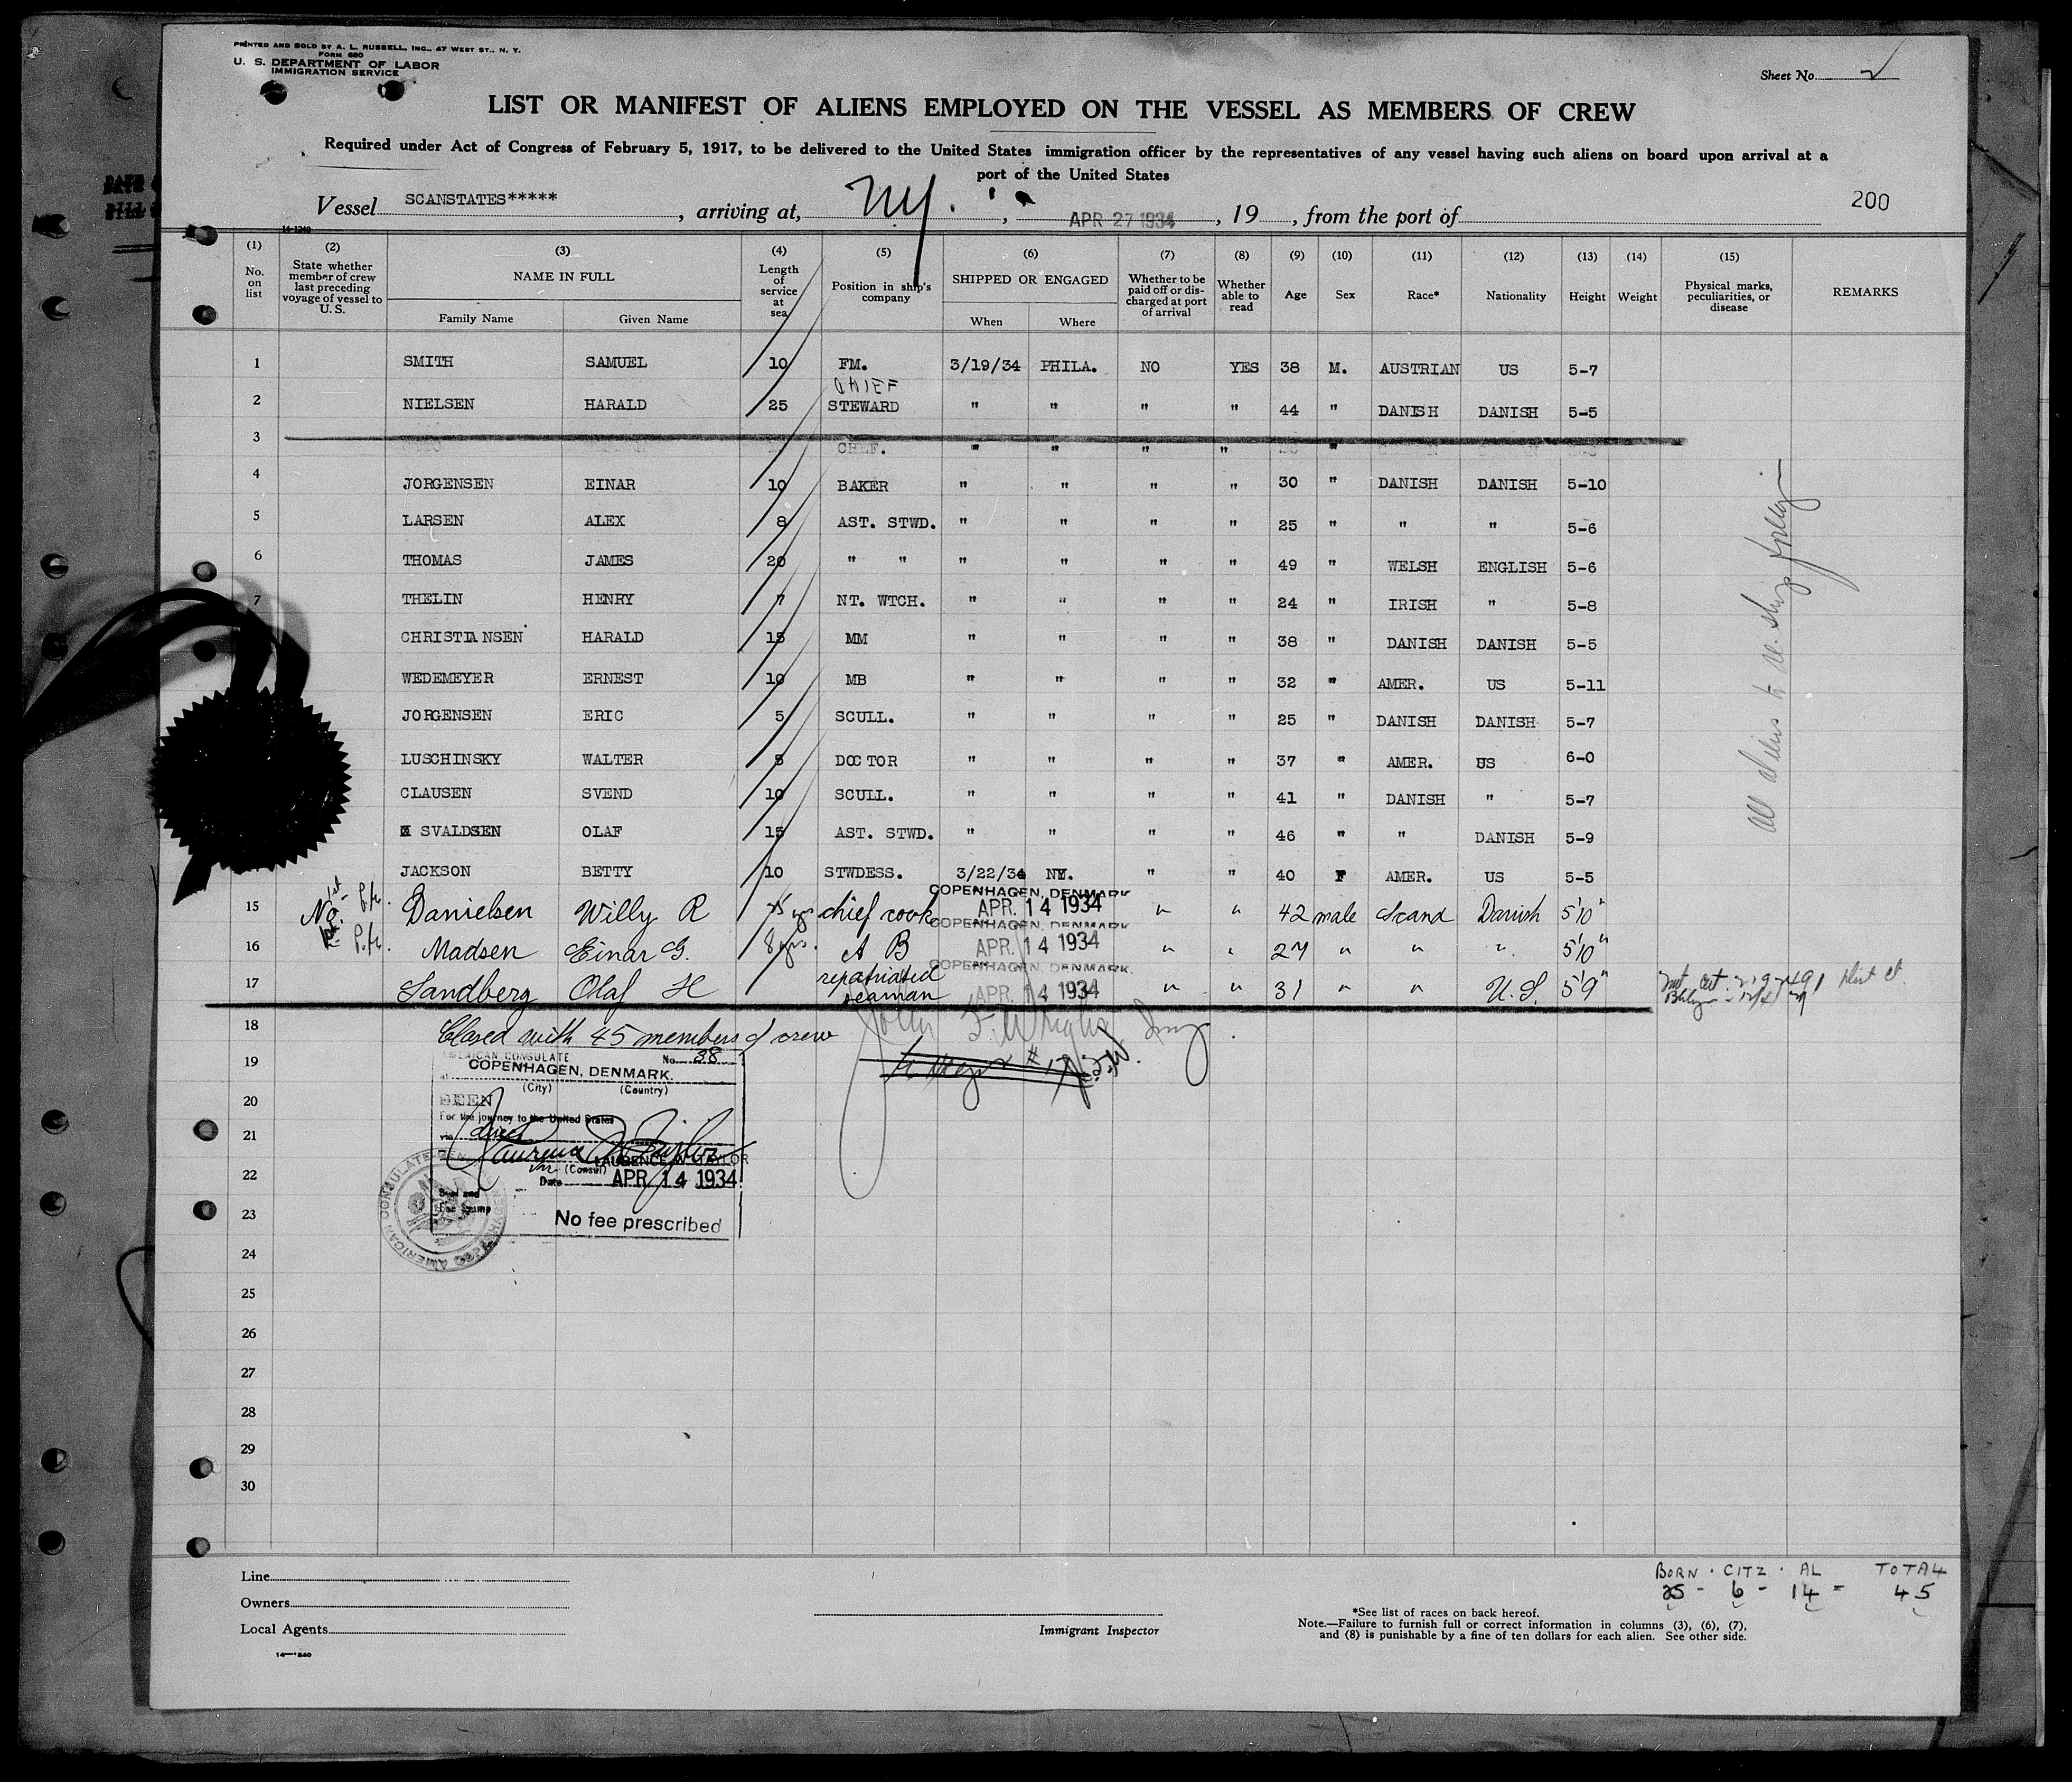 PRINTED AND SOLD BY A. L. RUSSELL, INC., 47 WEST ST., N. Y.
FORM 680
U. S. DEPARTMENT OF LABOR
IMMIGRATION SERVICE
Sheet No. 2
LIST OR MANIFEST OF ALIENS EMPLOYED ON THE VESSEL AS MEMBERS OF CREW
Required under Act of Congress of February 5, 1917, to be delivered to the United States immigration officer by the representatives of any vessel having such aliens on board upon arrival at a
port of the United States
200
Vessel SCANSTATES*****, arriving at, NY., APR 27 1934, 19, from the port of
14-1240
(1) (2) (3) (4) (5) (6) (7) (8) (9) (10) (11) (12) (13) (14) (15)
No. on list
State whether member of crew last preceding voyage of vessel to U. S.
NAME IN FULL
Family Name Given Name
Length of service at sea
Position in ship's company
SHIPPED OR ENGAGED
When Where
Whether to be paid off or discharged at port of arrival
Whether able to read
Age Sex Race* Nationality Height Weight
Physical marks, peculiarities, or disease
REMARKS
1 SMITH SAMUEL 10 FM. 3/19/34 PHILA. NO YES 38 M. AUSTRIAN US 5-7
CHIEF
2 NIELSEN HARALD 25 STEWARD " " " " 44 " DANISH DANISH 5-5
3 CHEF. " " " " "
4 JORGENSEN EINAR 10 BAKER " " " " 30 " DANISH DANISH 5-10
5 LARSEN ALEX 8 AST. STWD. " " " " 25 " " " 5-6
6 THOMAS JAMES 20 " " " " " " 49 " WELSH ENGLISH 5-6
7 THELIN HENRY 7 NT. WTCH. " " " " 24 " IRISH " 5-8
CHRISTIANSEN HARALD 15 MM " " " " 38 " DANISH DANISH 5-5
WEDEMEYER ERNEST 10 MB " " " " 32 " AMER. US 5-11
JORGENSEN ERIC 5 SCULL. " " " " 25 " DANISH DANISH 5-7
LUSCHINSKY WALTER 5 DOCTOR " " " " 37 " AMER. US 6-0
CLAUSEN SVEND 10 SCULL. " " " " 41 " DANISH " 5-7
SVALDSEN OLAF 15 AST. STWD. " " " " 46 " " DANISH 5-9
JACKSON BETTY 10 STWDESS. 3/22/34 NY. " " 40 F AMER. US 5-5
COPENHAGEN, DENMARK
15 No Danielsen Willy R chief cook APR. 14 1934 " " 42 male Scand Danish 5'10"
COPENHAGEN, DENMARK
16 Madsen Einar G. 8 yrs. A B APR. 14 1934 " " 27 " " " 5'10"
COPENHAGEN, DENMARK.
17 Sandberg Olaf H repatriated seaman APR. 14 1934 " " 31 " " U.S. 5'9"
All aliens to re-ship foreign
18 Closed with 45 members of crew
John F. Wright
19
AMERICAN CONSULATE No. 38
COPENHAGEN, DENMARK.
(City) (Country)
20
SEEN
For the journey to the United States
21 via direct
LAURENCE W. TAYLOR
(Consul)
22 Date APR 14 1934
Seal and
Fee Stamp
23 No fee prescribed
AMERICAN CONSULATE
24
25
26
27
28
29
30
BORN · CITZ · AL TOTAL
25 - 6 - 14 = 45
Line
Owners
Local Agents
Immigrant Inspector
*See list of races on back hereof.
Note.—Failure to furnish full or correct information in columns (3), (6), (7),
and (8) is punishable by a fine of ten dollars for each alien. See other side.
14—1240